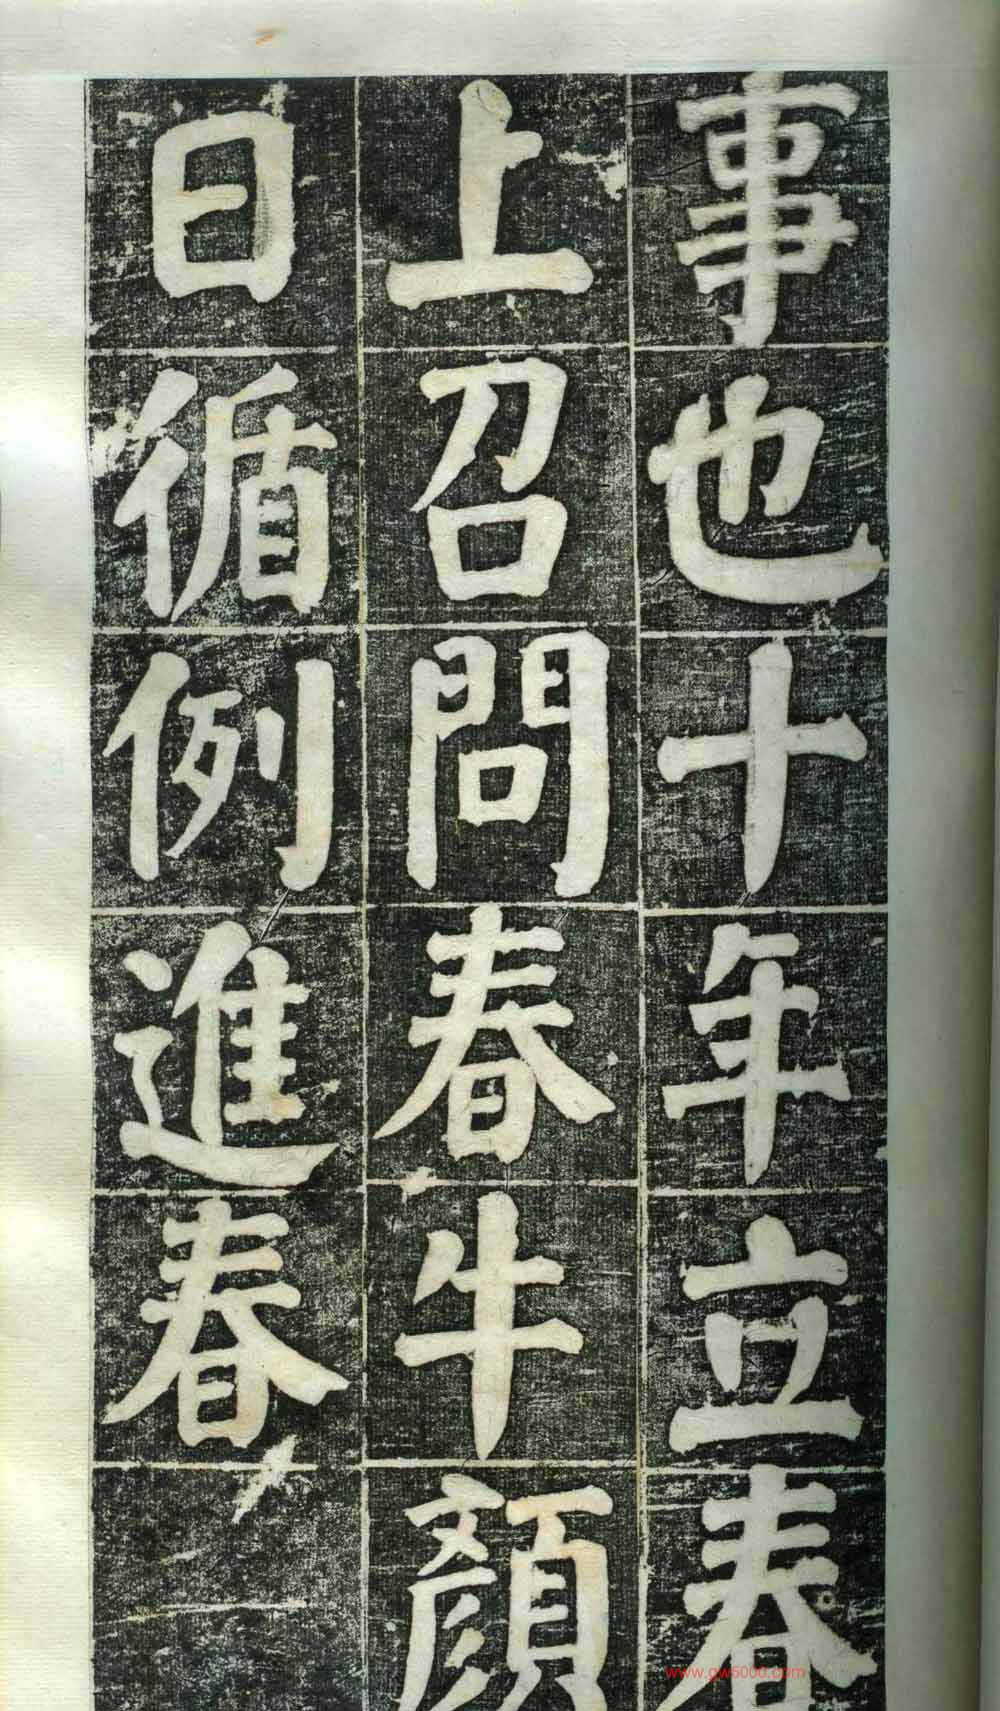 事也十年立春
上召問春牛顏
日循例進春
www.gw5000.com